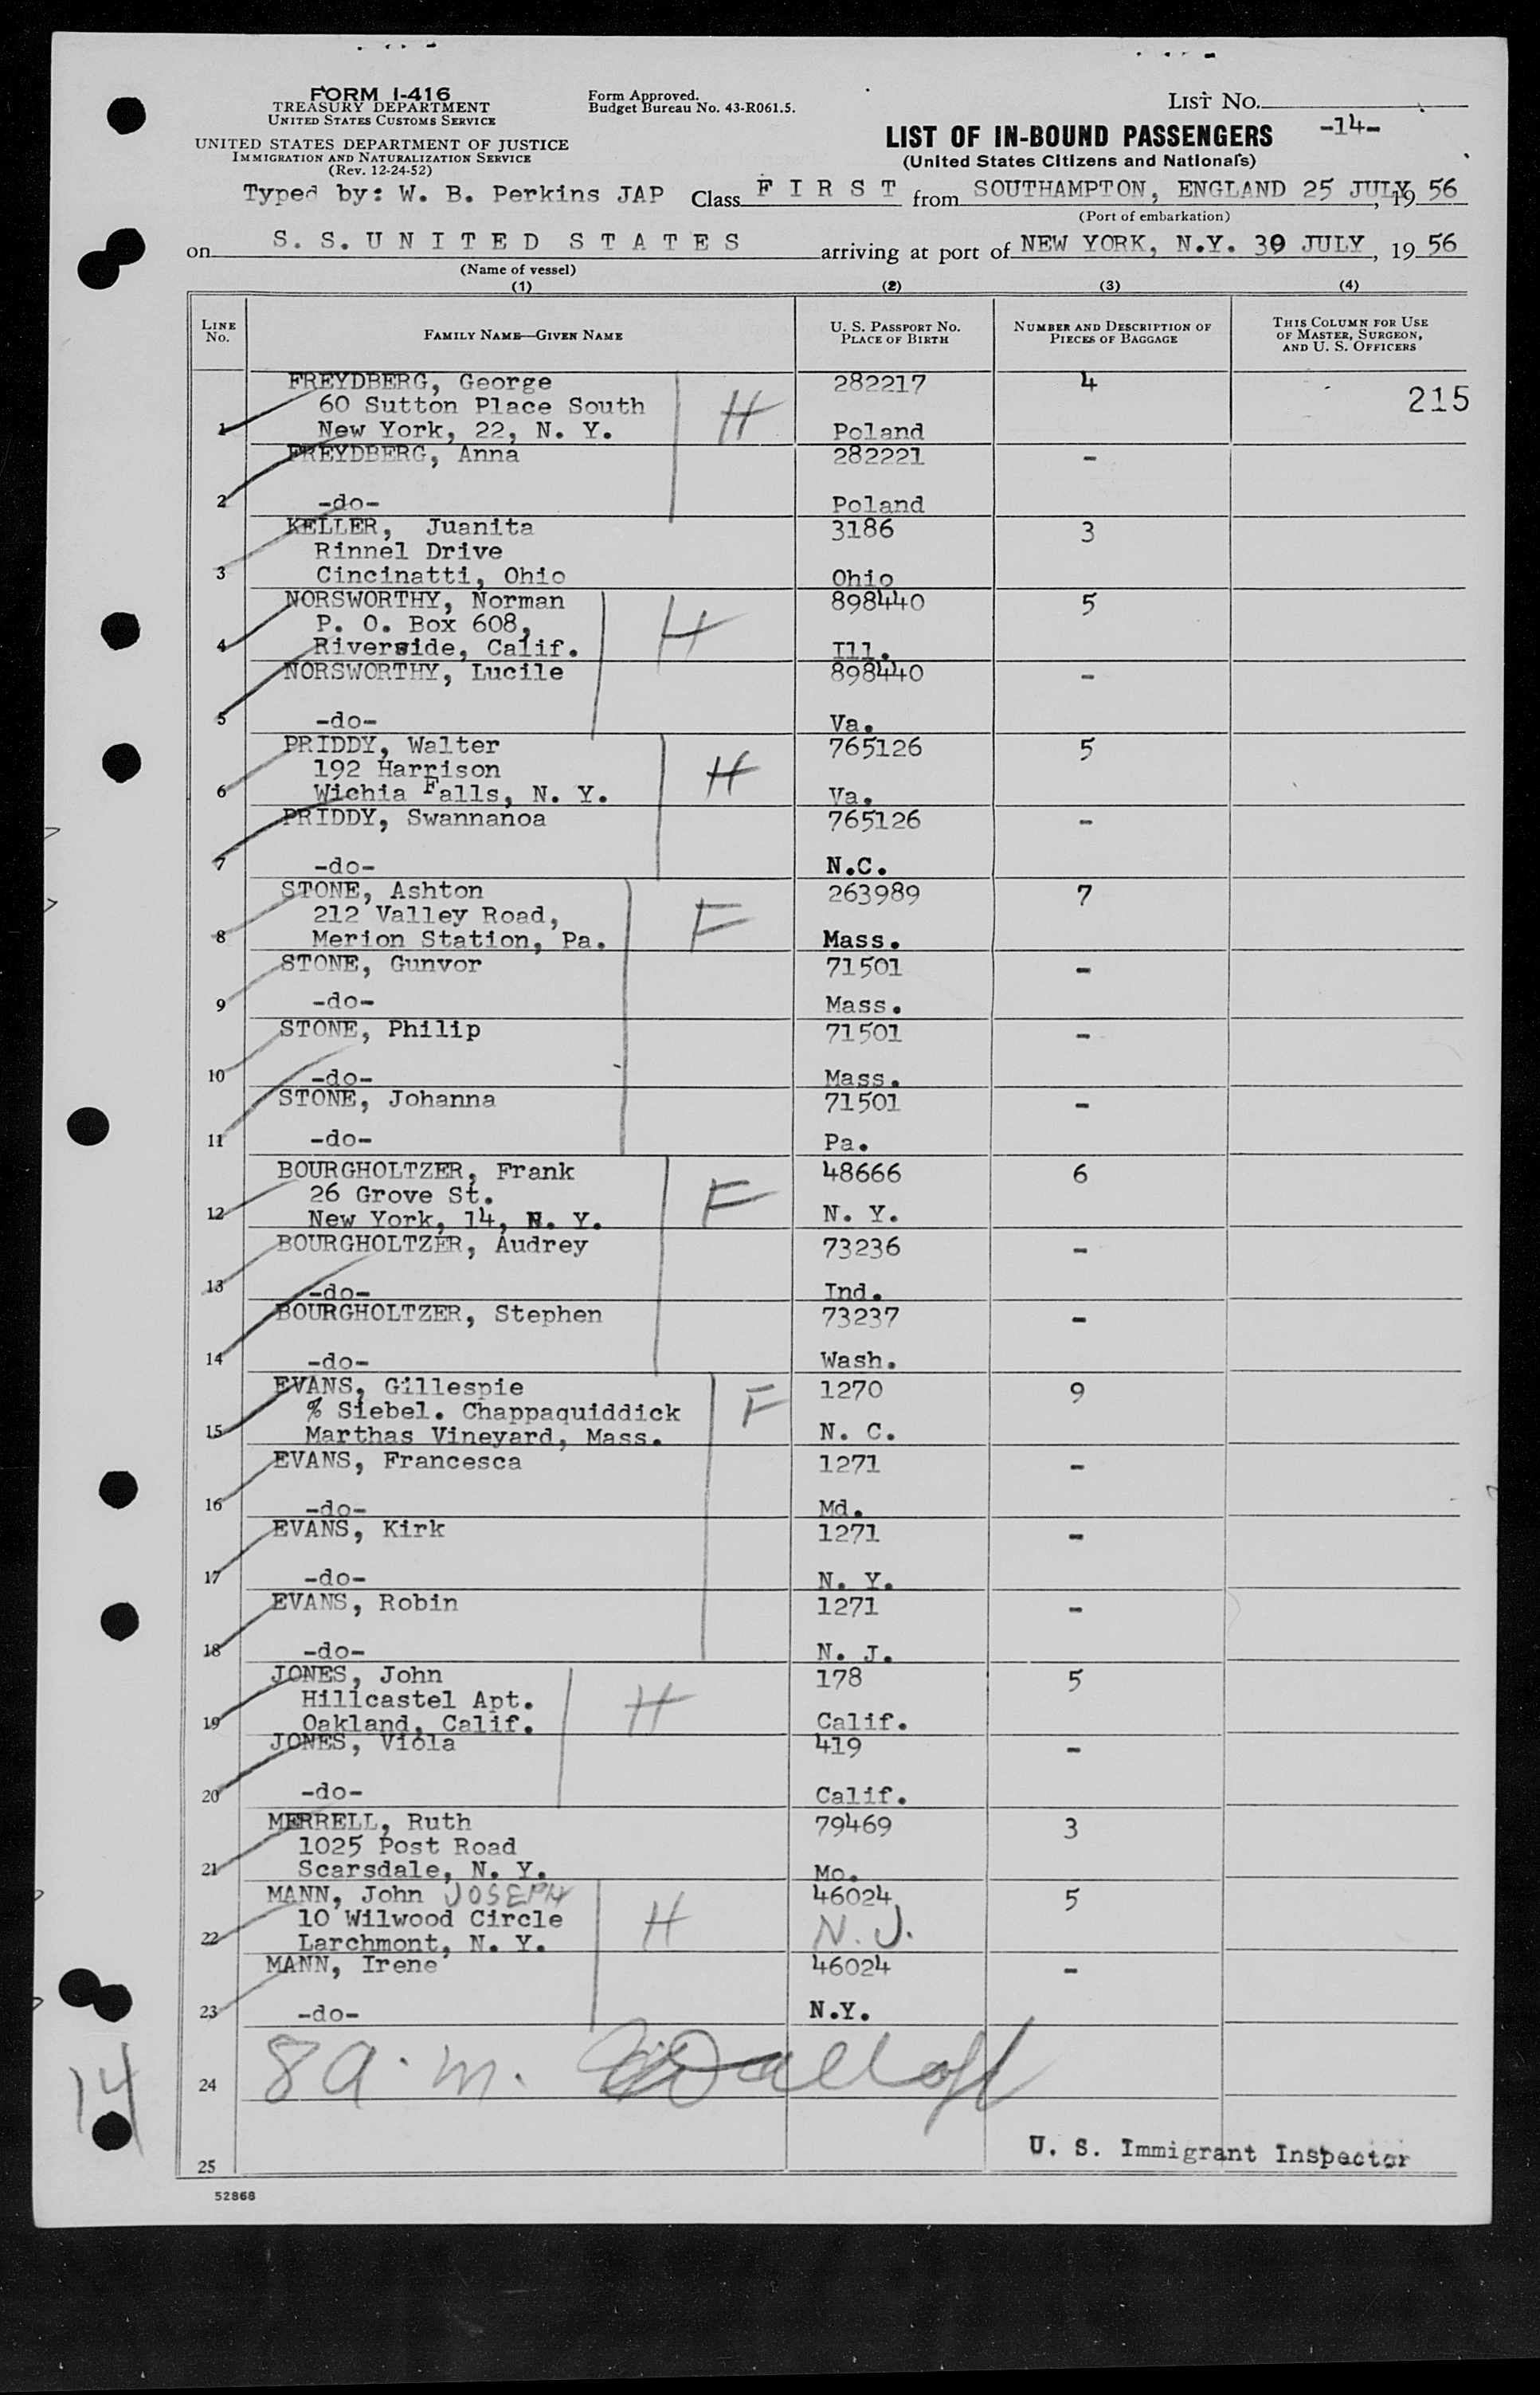 FORM I-416
TREASURY DEPARTMENT
UNITED STATES CUSTOMS SERVICE
UNITED STATES DEPARTMENT OF JUSTICE
IMMIGRATION AND NATURALIZATION SERVICE
(Rev. 12-24-52)
Form Approved.
Budget Bureau No. 43-R061.5.
LIST NO.
-14-
LIST OF IN-BOUND PASSENGERS
(United States Citizens and Nationals)
Typed by: W. B. Perkins JAP Class F I R S T from SOUTHAMPTON, ENGLAND 25 JULY, 19 56
(Port of embarkation)
on S. S. U N I T E D S T A T E S arriving at port of NEW YORK, N.Y. 30 JULY, 19 56
(Name of vessel)
(1) (2) (3) (4)
LINE NO. FAMILY NAME—GIVEN NAME U. S. PASSPORT NO. PLACE OF BIRTH NUMBER AND DESCRIPTION OF PIECES OF BAGGAGE THIS COLUMN FOR USE OF MASTER, SURGEON, AND U. S. OFFICERS
FREYDBERG, George 282217 4
60 Sutton Place South H 215
1 New York, 22, N. Y. Poland
FREYDBERG, Anna 282221 -
2 -do- Poland
KELLER, Juanita 3186 3
Rinnel Drive
3 Cincinatti, Ohio Ohio
NORSWORTHY, Norman 898440 5
P. O. Box 608, H
4 Riverside, Calif. Ill.
NORSWORTHY, Lucile 898440 -
5 -do- Va.
PRIDDY, Walter 765126 5
192 Harrison H
6 Wichia Falls, N. Y. Va.
PRIDDY, Swannanoa 765126 -
7 -do- N.C.
STONE, Ashton 263989 7
212 Valley Road, F
8 Merion Station, Pa. Mass.
STONE, Gunvor 71501 -
9 -do- Mass.
STONE, Philip 71501 -
10 -do- Mass.
STONE, Johanna 71501 -
11 -do- Pa.
BOURGHOLTZER, Frank 48666 6
26 Grove St. F
12 New York, 14, N. Y. N. Y.
BOURGHOLTZER, Audrey 73236 -
13 -do- Ind.
BOURGHOLTZER, Stephen 73237 -
14 -do- Wash.
EVANS, Gillespie F 1270 9
% Siebel. Chappaquiddick
15 Marthas Vineyard, Mass. N. C.
EVANS, Francesca 1271 -
16 -do- Md.
EVANS, Kirk 1271 -
17 -do- N. Y.
EVANS, Robin 1271 -
18 -do- N. J.
JONES, John 178 5
Hillcastel Apt. H
19 Oakland, Calif. Calif.
JONES, Viola 419 -
20 -do- Calif.
MERRELL, Ruth 79469 3
1025 Post Road
21 Scarsdale, N. Y. Mo.
MANN, John JOSEPH 46024 5
10 Wilwood Circle H N. J.
22 Larchmont, N. Y.
MANN, Irene 46024 -
23 -do- N.Y.
24 8 a. m.
14
U. S. Immigrant Inspector
25
52868